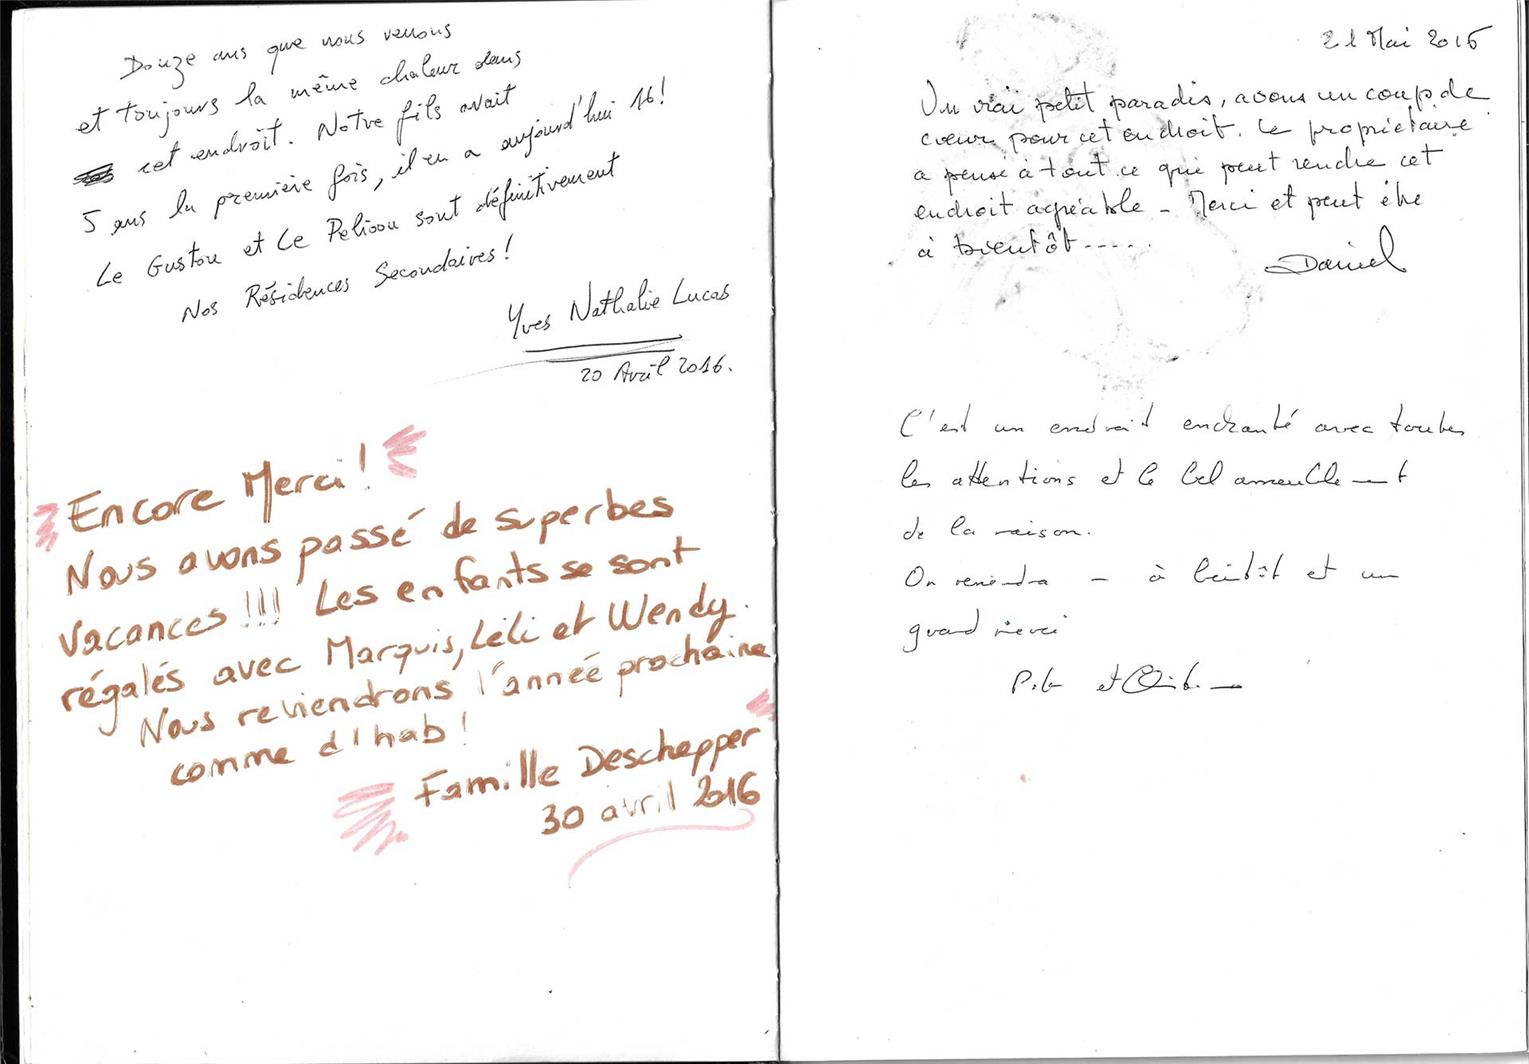 Douze ans que nous venons
et toujours la même chaleur dans
cet endroit. Notre fils avait
5 ans la première fois, il en a aujourd'hui 16!
Le Gustou et Le Pelissou sont définitivement
Nos Résidences Secondaires!
Yves Nathalie Lucas
20 Avril 2016.
Encore Merci!
Nous avons passé de superbes
vacances!!! Les enfants se sont
régalés avec Marquis, Lili et Wendy.
Nous reviendrons l'année prochaine
comme d'hab!
Famille Deschepper
30 avril 2016
21 Mai 2016
Un vrai petit paradis, avons un coup de
coeur pour cet endroit. Le propriétaire
a pensé à tout ce qui peut rendre cet
endroit agréable - Merci et peut être
à bientôt.....
Daniel
C'est un endroit enchanté avec toutes
les attentions et le bel ameublement
de la maison.
On reviendra - à bientôt et un
grand merci
et